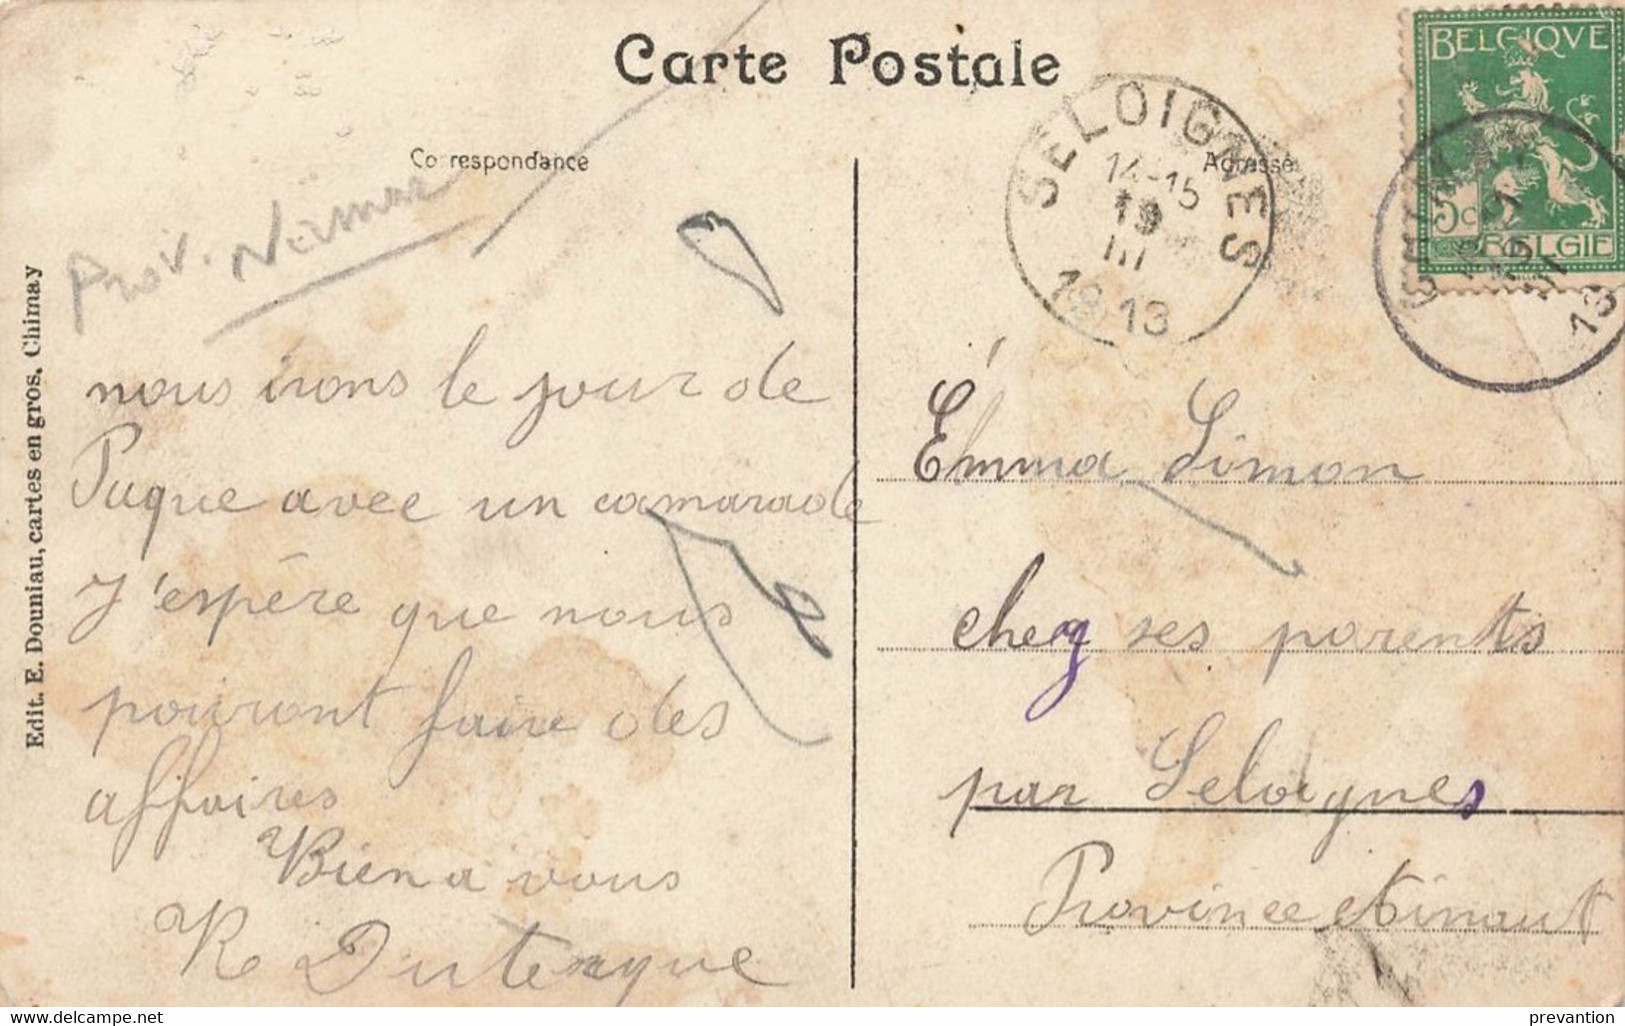 Carte Postale
Correspondance
Adresse
Prov. Namur
Edit. E. Douniau, cartes en gros. Chimay
SELOIGNES
14-15
19
III
1913
BELGIQVE
5c
BELGIE
13
nous irons le jour de
Paque avec un camarade
J'espère que nous
pouront faire des
affaires
Bien a vous
R
Émma Simon
chez ses parents
par Seloignes
Province
delcampe.net
prevantion